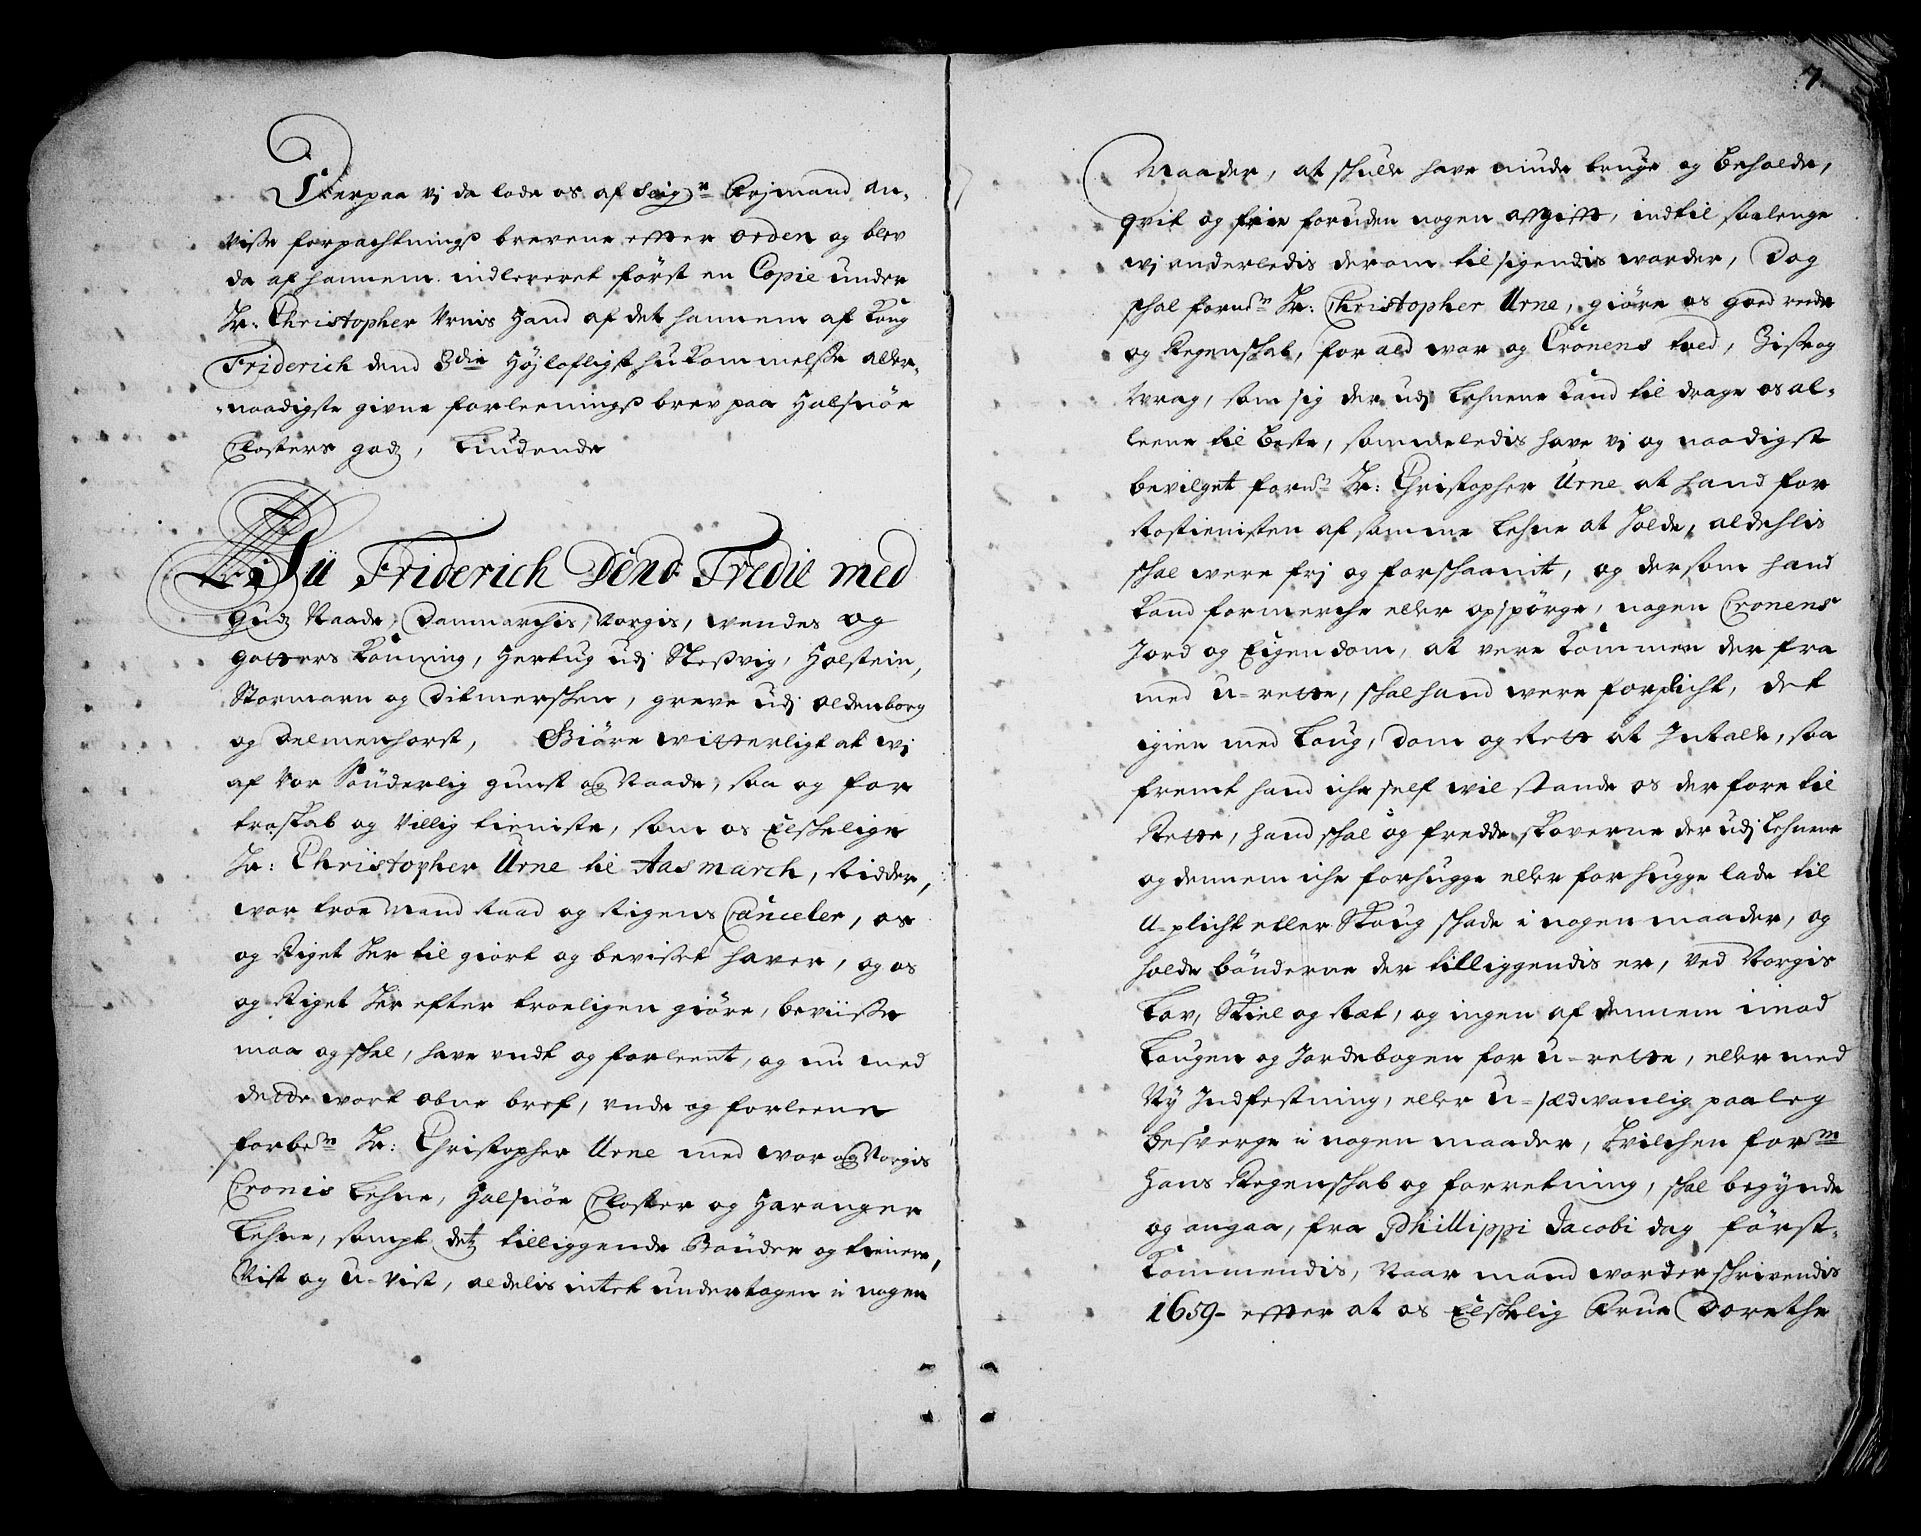 Herpaa vj da lode os af Seigr Frjmand an-
viße forpachtnings brevene efter orden og blev
da af hannem indleveret først en Copie under
Hr: Christopher Urnis Hand af det hannem af Kong
Friderich dend 3die Højloflig ihukommelße aller-
naadigste givne forleenings brev paa Halsnöe
Closters godz, Liudende
Wii Friderich Dend Tredie med
Gudz Naade, Danmarchis, Norgis, Wendes og
Gotters Konning, Hertug udj Sleßvig, Holstein,
Stormarn og Ditmerschen, greve udj Oldenborg
og Delmenhorst, Giöre witterligt at wj
af Vor Sönderlig gunst og Naade, saa og for
troskab og Villig tieniste, som os Elskelige
Hr: Christopher Urne til Aasmarch, Ridder,
wor troe Mand Raad og Rigens Canceler, os
og Riget Her til giort og bevisset haver, og os
og Riget Her efter troeligen giöre, beviiße
maa og skal, have undt og forleent, og nu med
dette wort obne bref, unde og forleene
forbem Hr: Christopher Urne med wor og Norgis
Cronis Lehne, Halsnöe Closter og Haranger
Lehne, sampt detz tilliggende Bönder og tienere,
Vist og U-Vist, aldelis intet undertagen i nogen
7.
Maader, at skulle have niude bruge og beholde,
qvit og frie foruden nogen Afgift, indtil saalenge
wj anderledis derom tilsigendis worder, Dog
skal fornem Hr: Christopher Urne, giöre os goed rede
og Regenskab, for ald wor og Cronens told, Siße og
Wrag, som sig der udj Lehnene kand til drage os al-
leene til beste, sammeledis have vj og naadigst
bevilget fornm Hr: Christopher Urne at hand for
Rostienisten af samme Lehne at Holde, aldehlis
skal were frj og forskaanit, og dersom hand
kand formerche eller opspörge, nogen Cronens
Jord og Eigendom, at vere kommen der fra
med U-rette, skal hand were forplicht, det
igien med Loug, Dom og Rett at Intale, saa
fremt hand iche self wil stande os der fore til
Rette, Hand skal og fredde Skoverne der udj Lehnene
og dennem iche forhugge eller forhugge lade til
U-plicht eller Skoug skade i nogen maader, og
holde bönderne der tilliggendis er, Ved Norgis
Lov, Skiel og Ræt, og ingen af dennem imod
Lougen og Jordebogen for U-rette, eller med
Ny Indfestning, eller U-sædwanlig paaleg
besverge i nogen maader, Hvilchen form
Hans Regenskab og forretning, skal begynde
og angaa, fra Phillippi Jacobi dag först-
kommendis, Naar mand worder skrivendis
1659- efter at os Elskelig Frue Dorethe